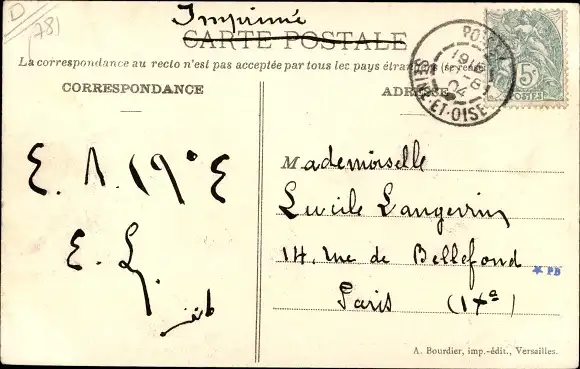 D
(78)
Imprimé
CARTE POSTALE
La correspondance au recto n'est pas acceptée par tous les pays étrangers
CORRESPONDANCE
ADRESSE
SEINE-ET-OISE
5c
POSTES
Mademoiselle
Lucile Langevin
14. rue de Bellefond
Paris (IXe)
PB
E. L.
A. Bourdier, imp.-édit., Versailles.